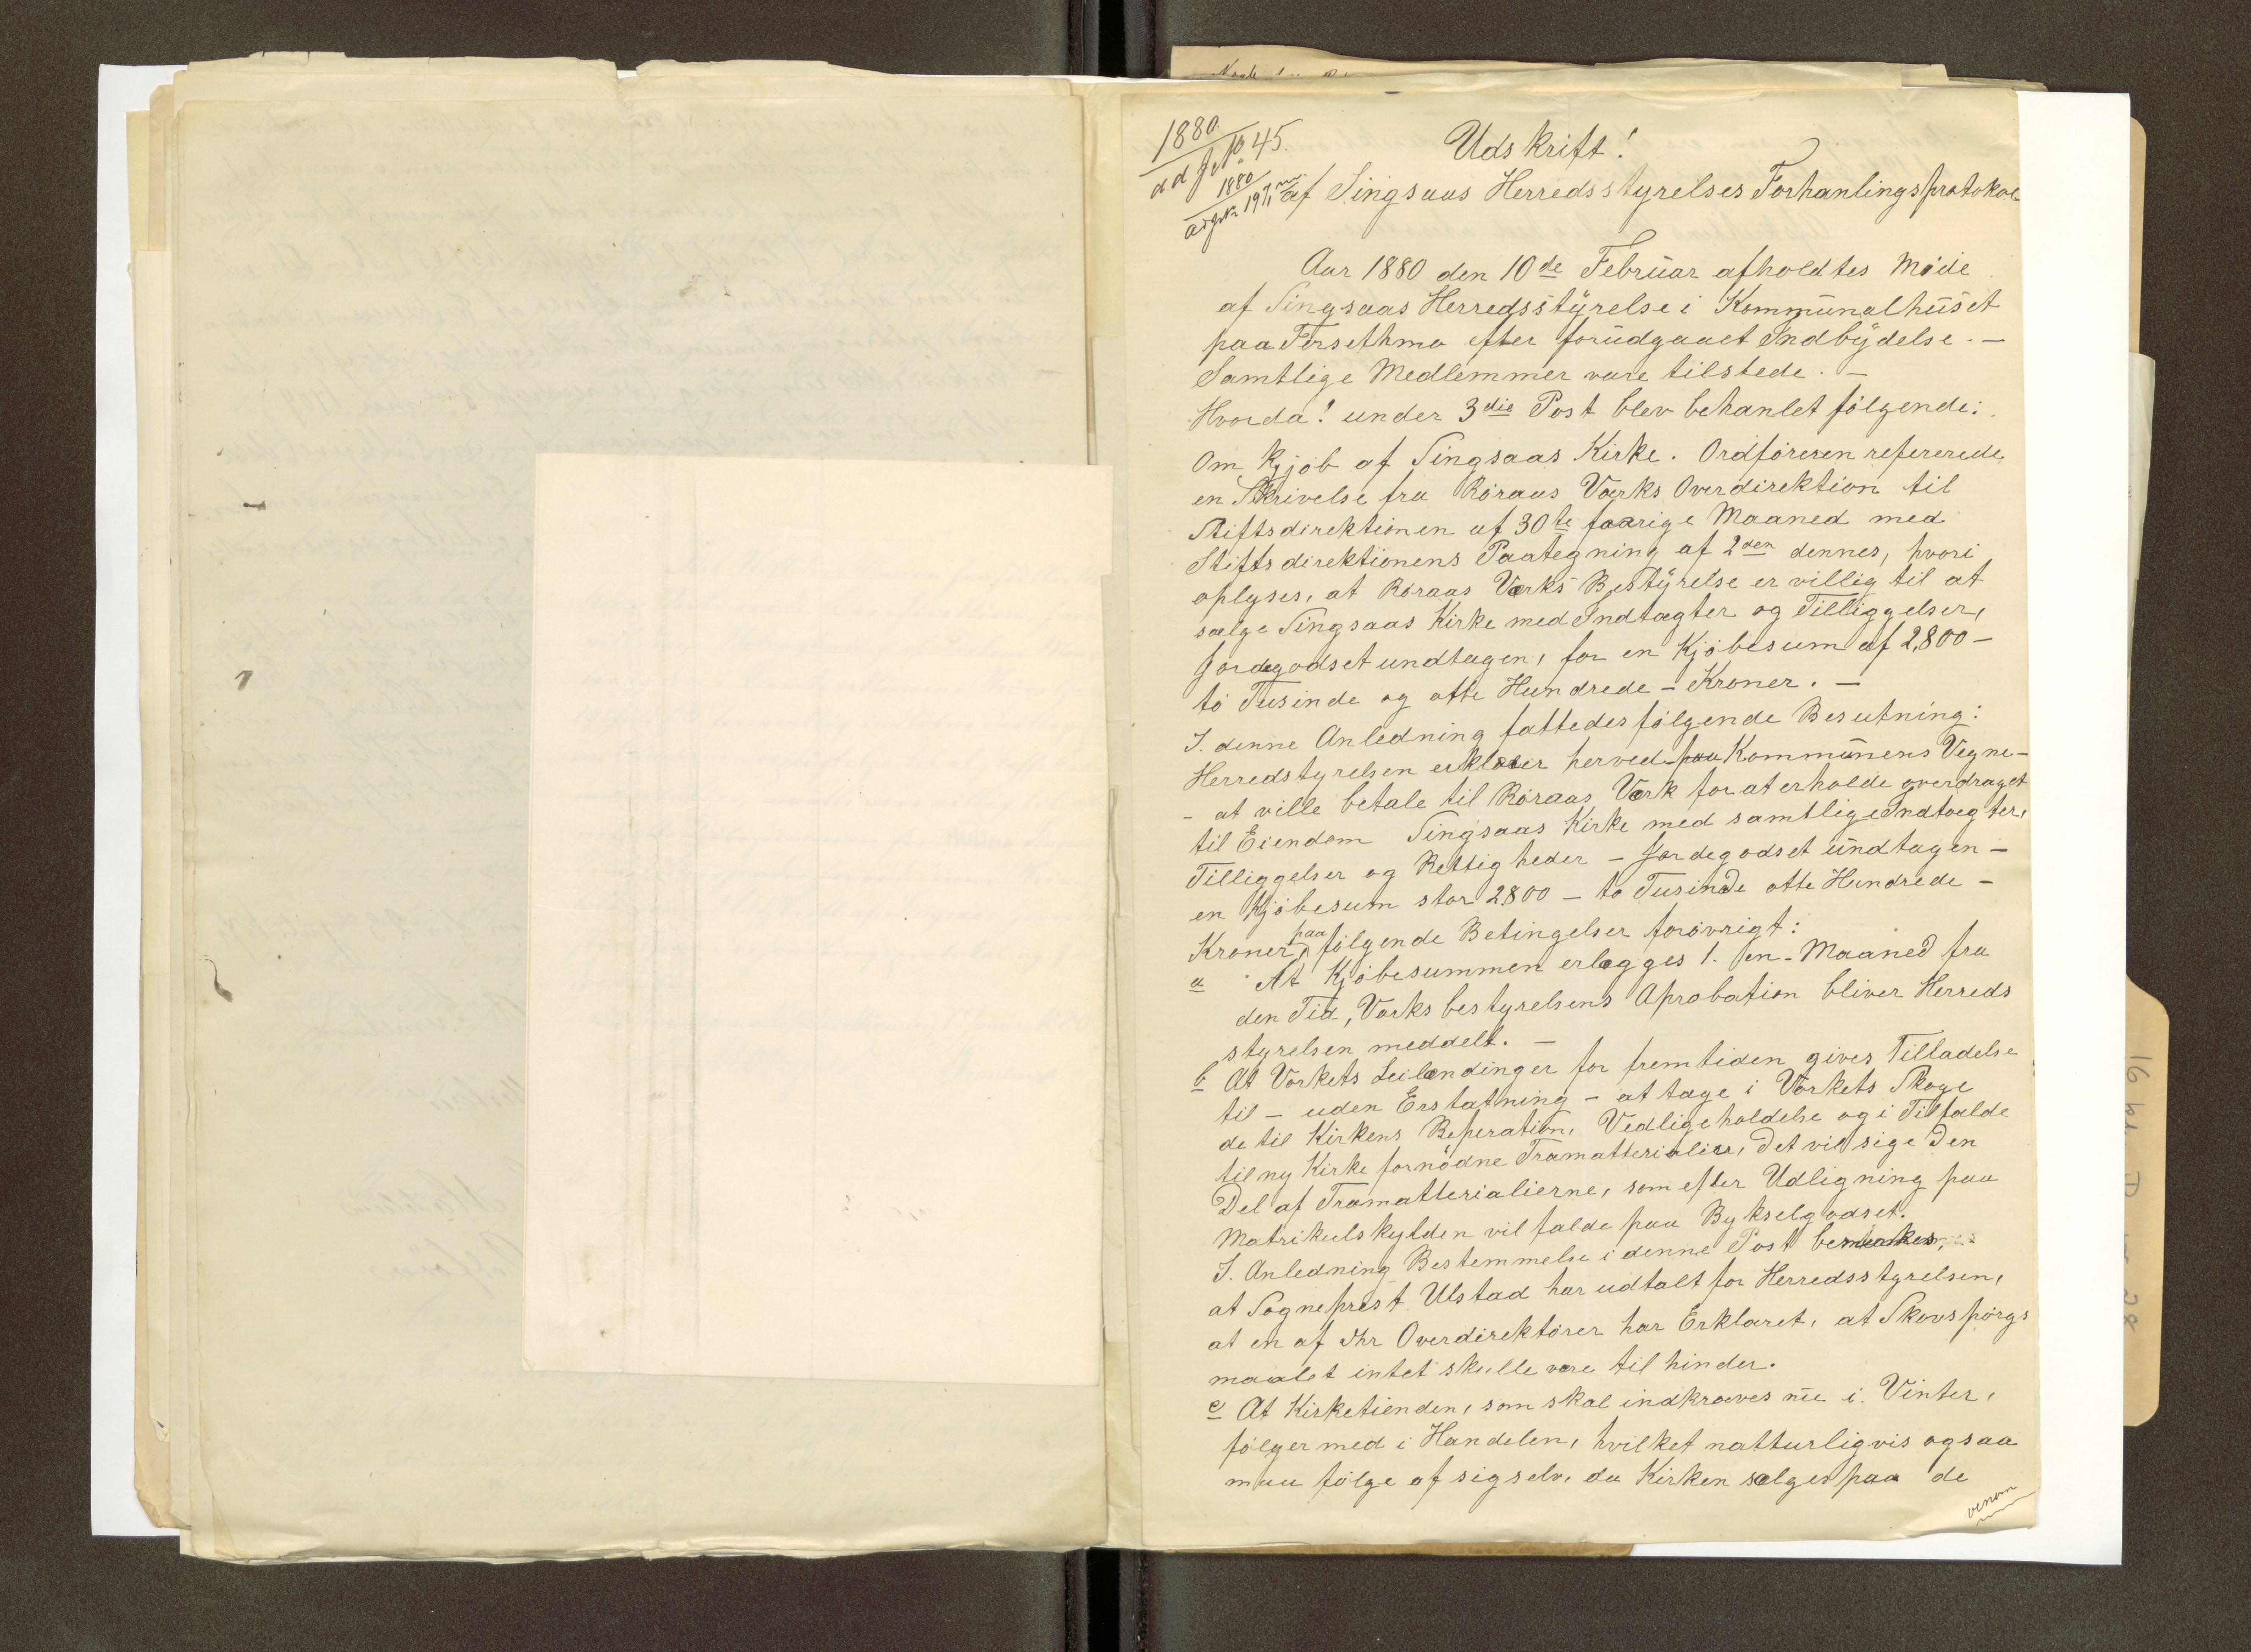 1880.
ad J. No 45.
1880
Udskrift!
af Singsaas Herredsstyrelses Forhanlingsprotokol
Aar 1880 den 10de Februar afholdtes Møde
af Singsaas Herredsstyrelse i Kommunalhuset
paa Forsethmo efter forudgaaet Indbydelse. —
Samtlige Medlemmer vare tilstede. —
Hvorda! under 3die Post blev behanlet følgende:
Om Kjøb af Singsaas Kirke. Ordføreren refererede
en Skrivelse fra Røraas Værks Overdirektion til
Stiftsdirektionen af 30te forrige Maaned med
Stiftsdirektionens Paategning af 2den dennes, hvori
oplyses, at Røraas Værks Bestyrelse er villig til at
sælge Singsaas Kirke med Indtægter og Tilliggelser,
Jordegodset undtagen, for en Kjøbesum af 2,800 —
to Tusinde og otte Hundrede — Kroner. —
I. denne Anledning fattedes følgende Besutning:
Herredstyrelsen erklærer herved paa Kommunens Vegne —
— at ville betale til Røraas Værk for at erholde overdraget
til Eiendom Singsaas Kirke med samtlige Indtægter,
Tilliggelser og Rettigheder — Jordegodset undtagen —
en Kjøbesum stor 2800 — to Tusinde otte Hundrede —
Kroner, paa følgende Betingelser forøvrigt:
a At Kjøbesummen erlægges 1. en. Maaned fra
den Tid, Værksbestyrelsens Aprobation bliver Herreds
styrelsen meddelt. —
b At Værkets Leilændinger for fremtiden gives Tilladelse
til — uden Erstatning — at tage i Værkets Skoge
de til Kirkens Reperation, Vedligeholdelse og i Tilfælde
til ny Kirke fornødne Træmatterialier, det vil sige den
Del af Træmatterialierne, som efter Udligning paa
Matrikulskylden vil falde paa Bykselgodset.
I. Anledning Bestemmelse i denne Post bemærkes,
at Sogneprest Ulstad har udtalt for Herredsstyrelsen,
at en af Hr Overdirektører har Erklæret, at Skovspørgs
maalet intet skulle være til hinder.
c At Kirketienden, som skal indkræves nu i Vinter,
følger med i Handelen, hvilket natturligvis ogsaa
maa følge af sigselv, da Kirken sælges paa de